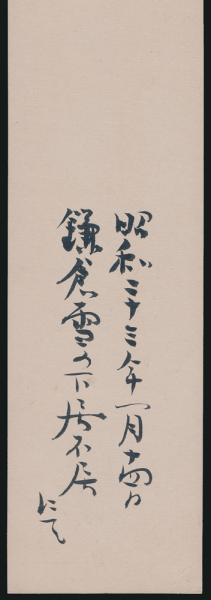 昭和三十三年一月十四日
鎌倉雪の下居不居
にて